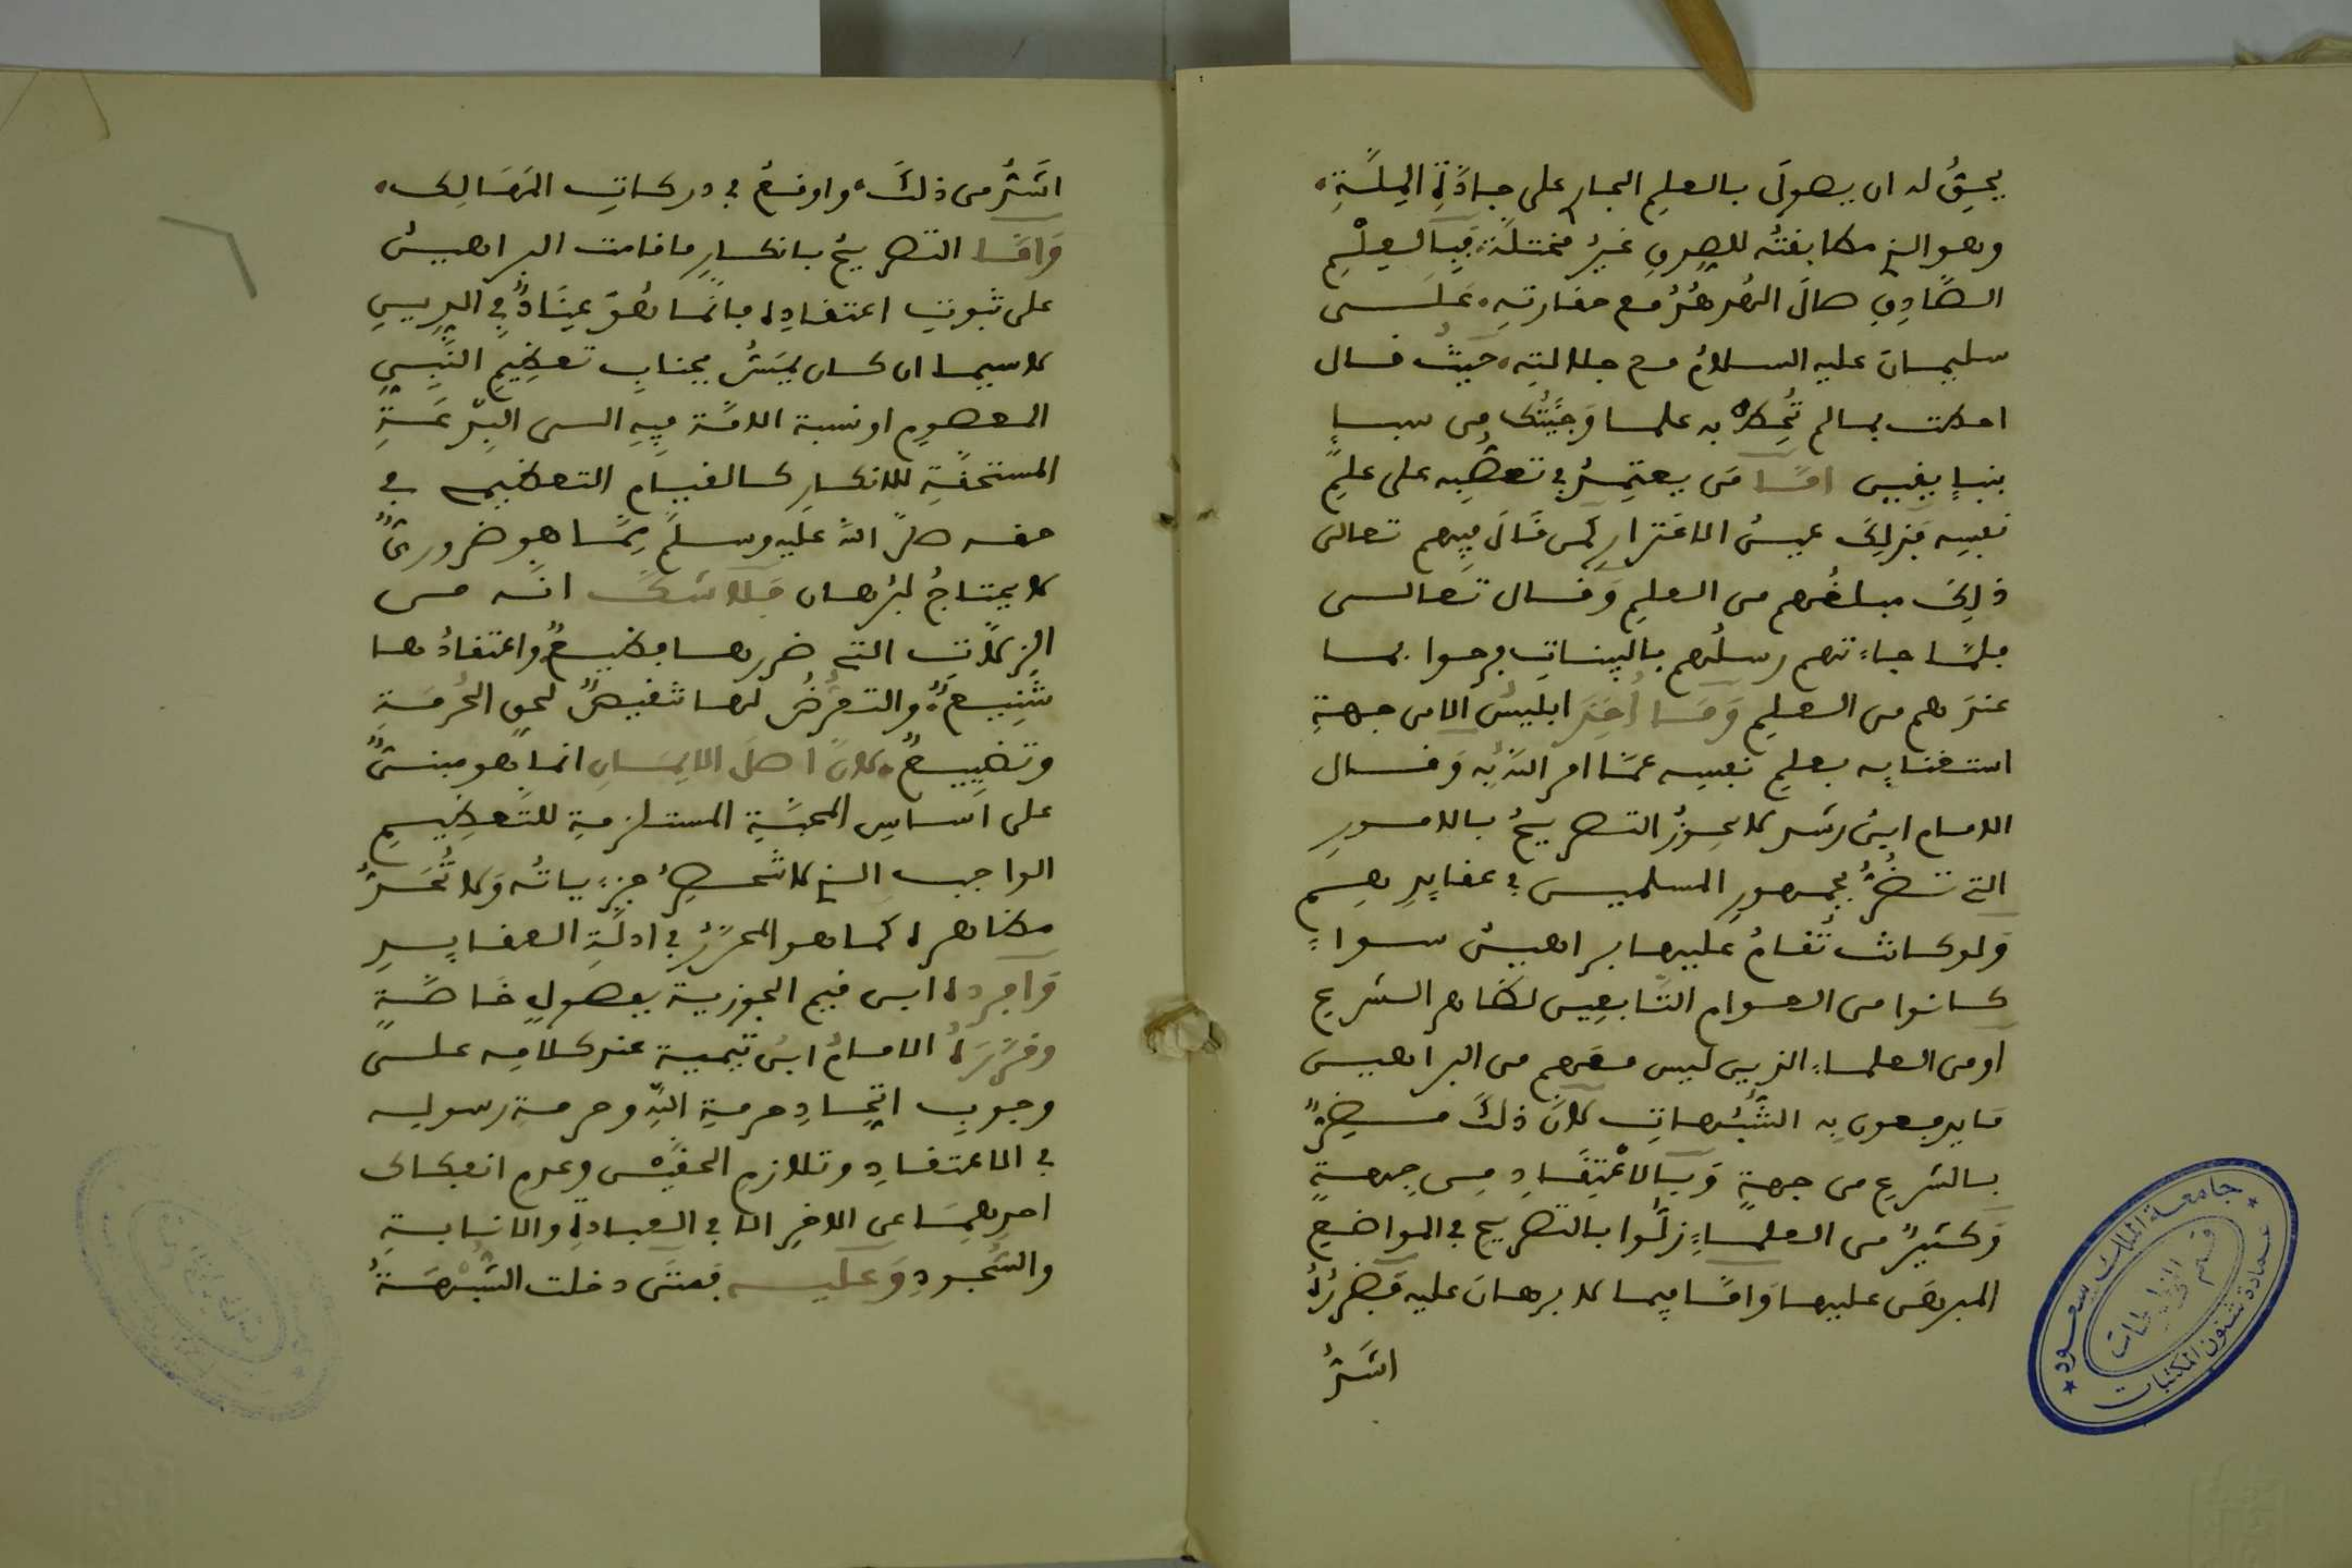 يحِقُّ له ان يصولَ بالعلم الجار على جادَّةِ المِلَّةِ،
وهو الذي مطابقتُه للصدقِ غيرُ مختلَّة، فبِالعِلْمِ
الصَّادِقِ صالَ الهُدهُدُ مع حقارتِه، عَلَى
سليمانَ عليه السلامُ مع جلالتِه، حيثُ قال
احطت بما لم تُحِطْ به علما وَجِئتُك مِن سبإٍ
بنبإٍ يقين امَّا مَن يعتمِدُ في تعصُّبِه على علمِ
نفسِه فذلِكَ عينُ الاغترارِ كمن قَالَ فِيهم تعالى
ذلِكَ مبلغُهم من العلمِ وَقال تَعالى
فلمَّا جاءتهم رسلُهم بالبيناتِ فرحوا بما
عندَهم من العلمِ وَمَا أُخِذَ ابليسُ الا من جهةِ
استغنايِه بعلمِ نفسِه عمَّا امر اللهُ بِه وَقال
الامام ابنُ رشد لا يجوزُ التصريحُ بالامورِ
التي تضُرُّ بجمهورِ المسلمين في عقايدِهم
وَلو كانت تُقامُ عليها براهينُ سواءً
كانوا من العوام التَّابعِين لظاهر الشرع
او من العلماءِ الذين ليس معَهم من البراهين
مَا يدفعون بِه الشُّبُهاتِ لانَّ ذلك مضِرٌّ
بالشرعِ من جهةٍ وَبِالاعْتِقَادِ مِن جِهةٍ
وَكثيرٌ من العلماءِ زلُّوا بالتصريح في المواضعِ
المبرهَنِ عليها وَامَّا فيما لا برهانَ عليه فَضررُهُ
اشَدُّ
اشَدُّ من ذلكَ، واوقعُ في دركاتِ المَهَالِك،
وَامَّا التصريحُ بانكارِ ما قامت البراهينُ
على ثبوتِ اعتقادِه فانَّما هُوَ عِنَادٌ في الدِينِ
لا سيما ان كان يمَسُّ بجنابِ تعظِيمِ النَّبِيِّ
المعصومِ او نسبة الامَّة فِيهِ الى البِدْعَةِ
المستحقَّةِ للانكارِ كالقيامِ التعظيمي في
حقه صلَّ اللهُ عليه وسلَّم مِمَّا هو ضروريٌّ
لا يحتاجُ لبُرهان فَلا شكَّ انَّه من
الزلَّاتِ التي ضررها فظيعٌ، واعتقادُها
شنِيعٌ، والتعرُّضُ لها نقيصٌ لحقِ الحُرمَةِ
وتضييعٌ، لانَّ اصلَ الايمَانِ انما هو مبنىٌّ
على اَساسِ المحبَّةِ المستلزمةِ للتَعظِيمِ
الواجب الذي لا تنحصِرُ جزءياتُه وَلا تُحَدُّ
مظاهره كما هو المحرَّرُ في ادلَّةِ العقايدِ
وَافرده ابن قيم الجوزية بفصولٍ خَاصَّةٍ
وقرَّرَهُ الامامُ ابنُ تيمية عند كلامِه على
وجوبِ اتِّحادِ حرمةِ اللهِ وحرمةِ رسوله
في الاعتقادِ وتلازمِ الحقَّيْن وعدمِ انفكاك
احدِهمَا عن الاخرِ الا في العبادةِ والانابةِ
والسُّجودِ وَعليه فَمتى دخلت الشُّبْهَةُ
جامعة الملك سعود
عمادة شئون المكتبات
قسم المخطوطات